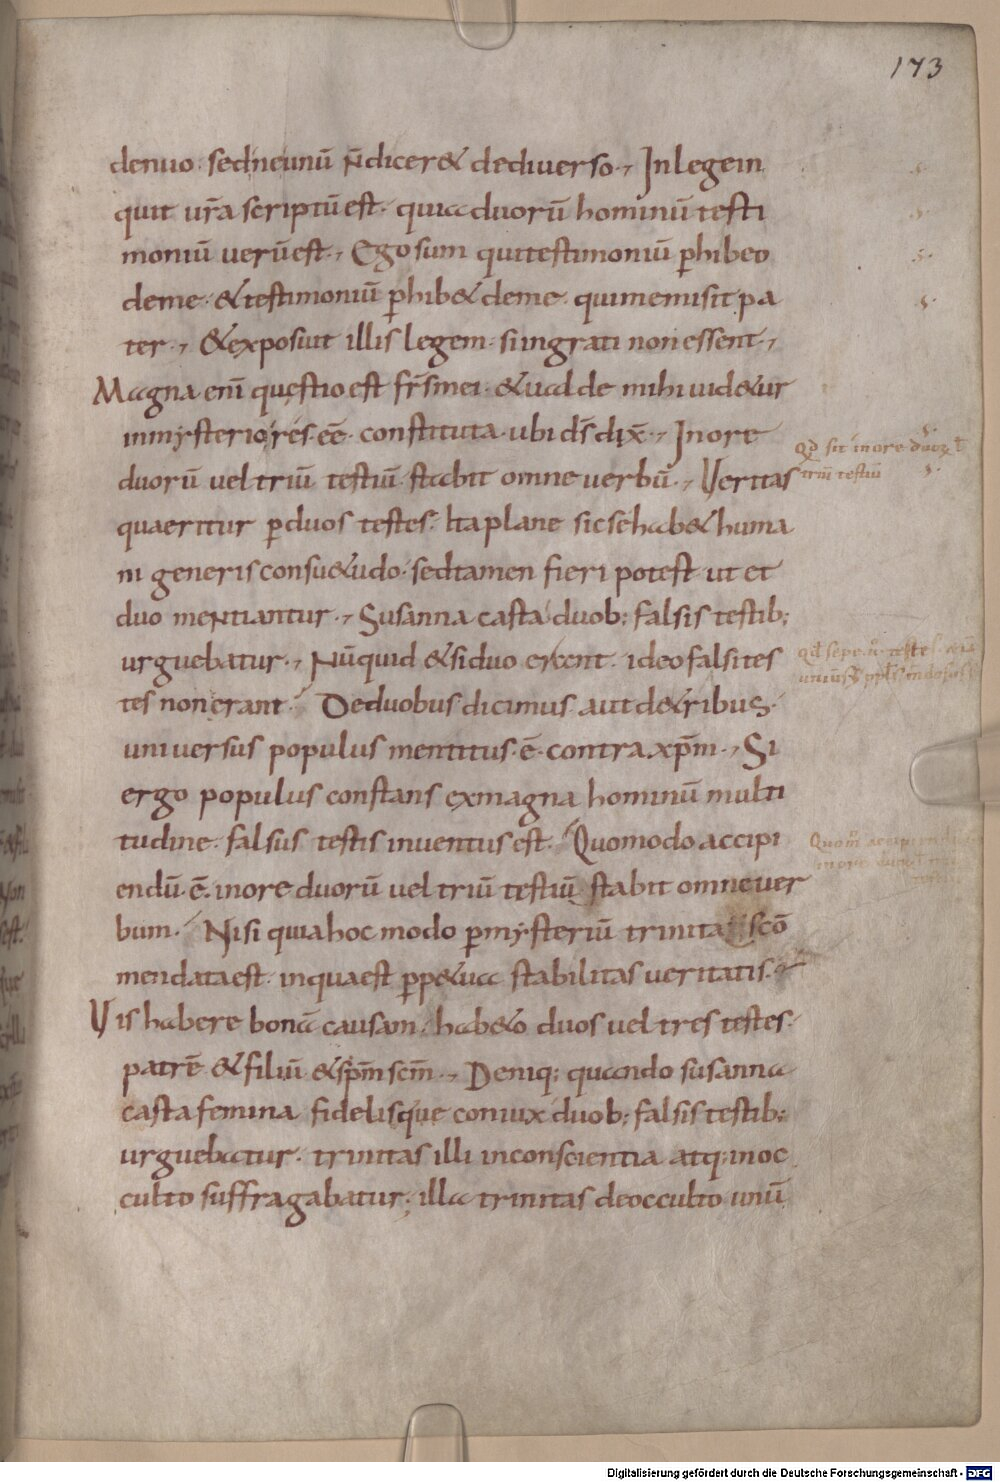 173
denuo · sed ne unū n̄ dicer& de diuerso ·, In lege in
quit ur̄a scriptū est · quia duorū hominū testi
moniū uerū est ·, Ego sum qui testimoniū p̱hibeo
de me · & testimoniū p̱hib& de me · qui me misit pa
ter ·, & exposuit illis legem · si ingrati non essent ·,
Magna enī quęstio est fr̄s mei · & ualde mihi uid&ur
in mysterio res eē · constituta · ubi d̄s dix̄ ·, In ore
duorū uel triū testiū stabit omne uerbū ·, Ueritas
quaeritur p̱ duos testes · Ita plane sic se hab& huma
ni generis consu&udo · sed tamen fieri potest ut et
duo mentiantur ·, Susanna casta duob; falsis testib;
urguebatur ·, Nūquid & si duo erant · ideo falsi tes
tes non erant · De duobus dicimus aut de tribus ·
uniuersus populus mentitus · ē · contra xp̄m ·, Si
ergo populus constans ex magna hominū multi
tudine · falsus testis inuentus est · Quomodo accipi
endū · ē · in ore duorū uel triū testiū stabit omne uer
bum · Nisi quia hoc modo p̱ mysteriū trinitatis cō
mendata est · in qua est p̱p&ua stabilitas ueritatis ·
Uis habere bonā causam · hab&o duos uel tres testes ·
patrē & filiū & sp̄m sc̄m ·, Deniq; quando susanna
casta femina fidelisque coniux duob; falsis testib;
urguebatur · trinitas illi in conscientia atq; in oc
culto suffragabatur · illa trinitas de occulto unū
qd̄ sit in ore duoꝝ ł
triū testiū
Digitalisierung gefördert durch die Deutsche Forschungsgemeinschaft - DFG